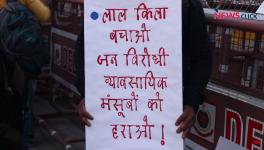 लाल किला
बचाओ
जन विरोधी
व्यवसायिक
मंसूबों को
हराओ!
NEWSCLICK
DEL